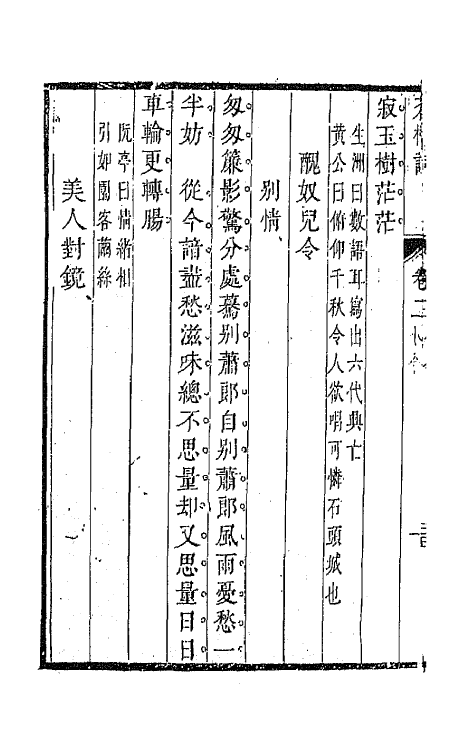 寂玉樹茫茫
生洲曰數語耳寫出六代興亡
黃公曰俯仰千秋令人欲唱可憐石頭城也
醜奴兒令
别情
匆匆簾影驚分處驀别蕭郎自别蕭郎風雨憂愁一
半妨　從今諳盡愁滋味總不思量却又思量日日
車輪更轉腸
阮亭曰情緒相
引如園客繭絲
美人對鏡